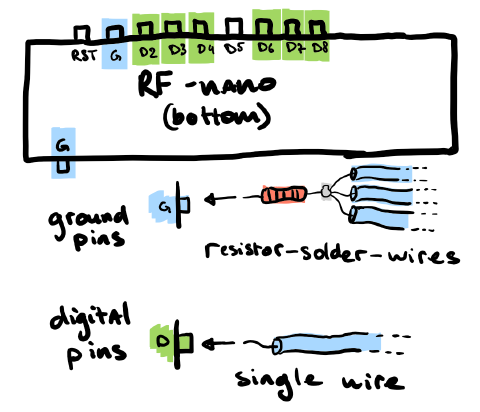 RST G D2 D3 D4 D5 D6 D7 D8
RF-NANO
(bottom)
G
ground
pins
G
resistor-solder-wires
digitAl
pins
D
single wire